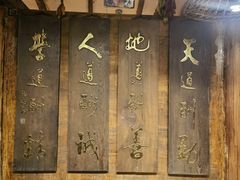 天道酬勤
地道酬善
人道酬诚
商道酬信